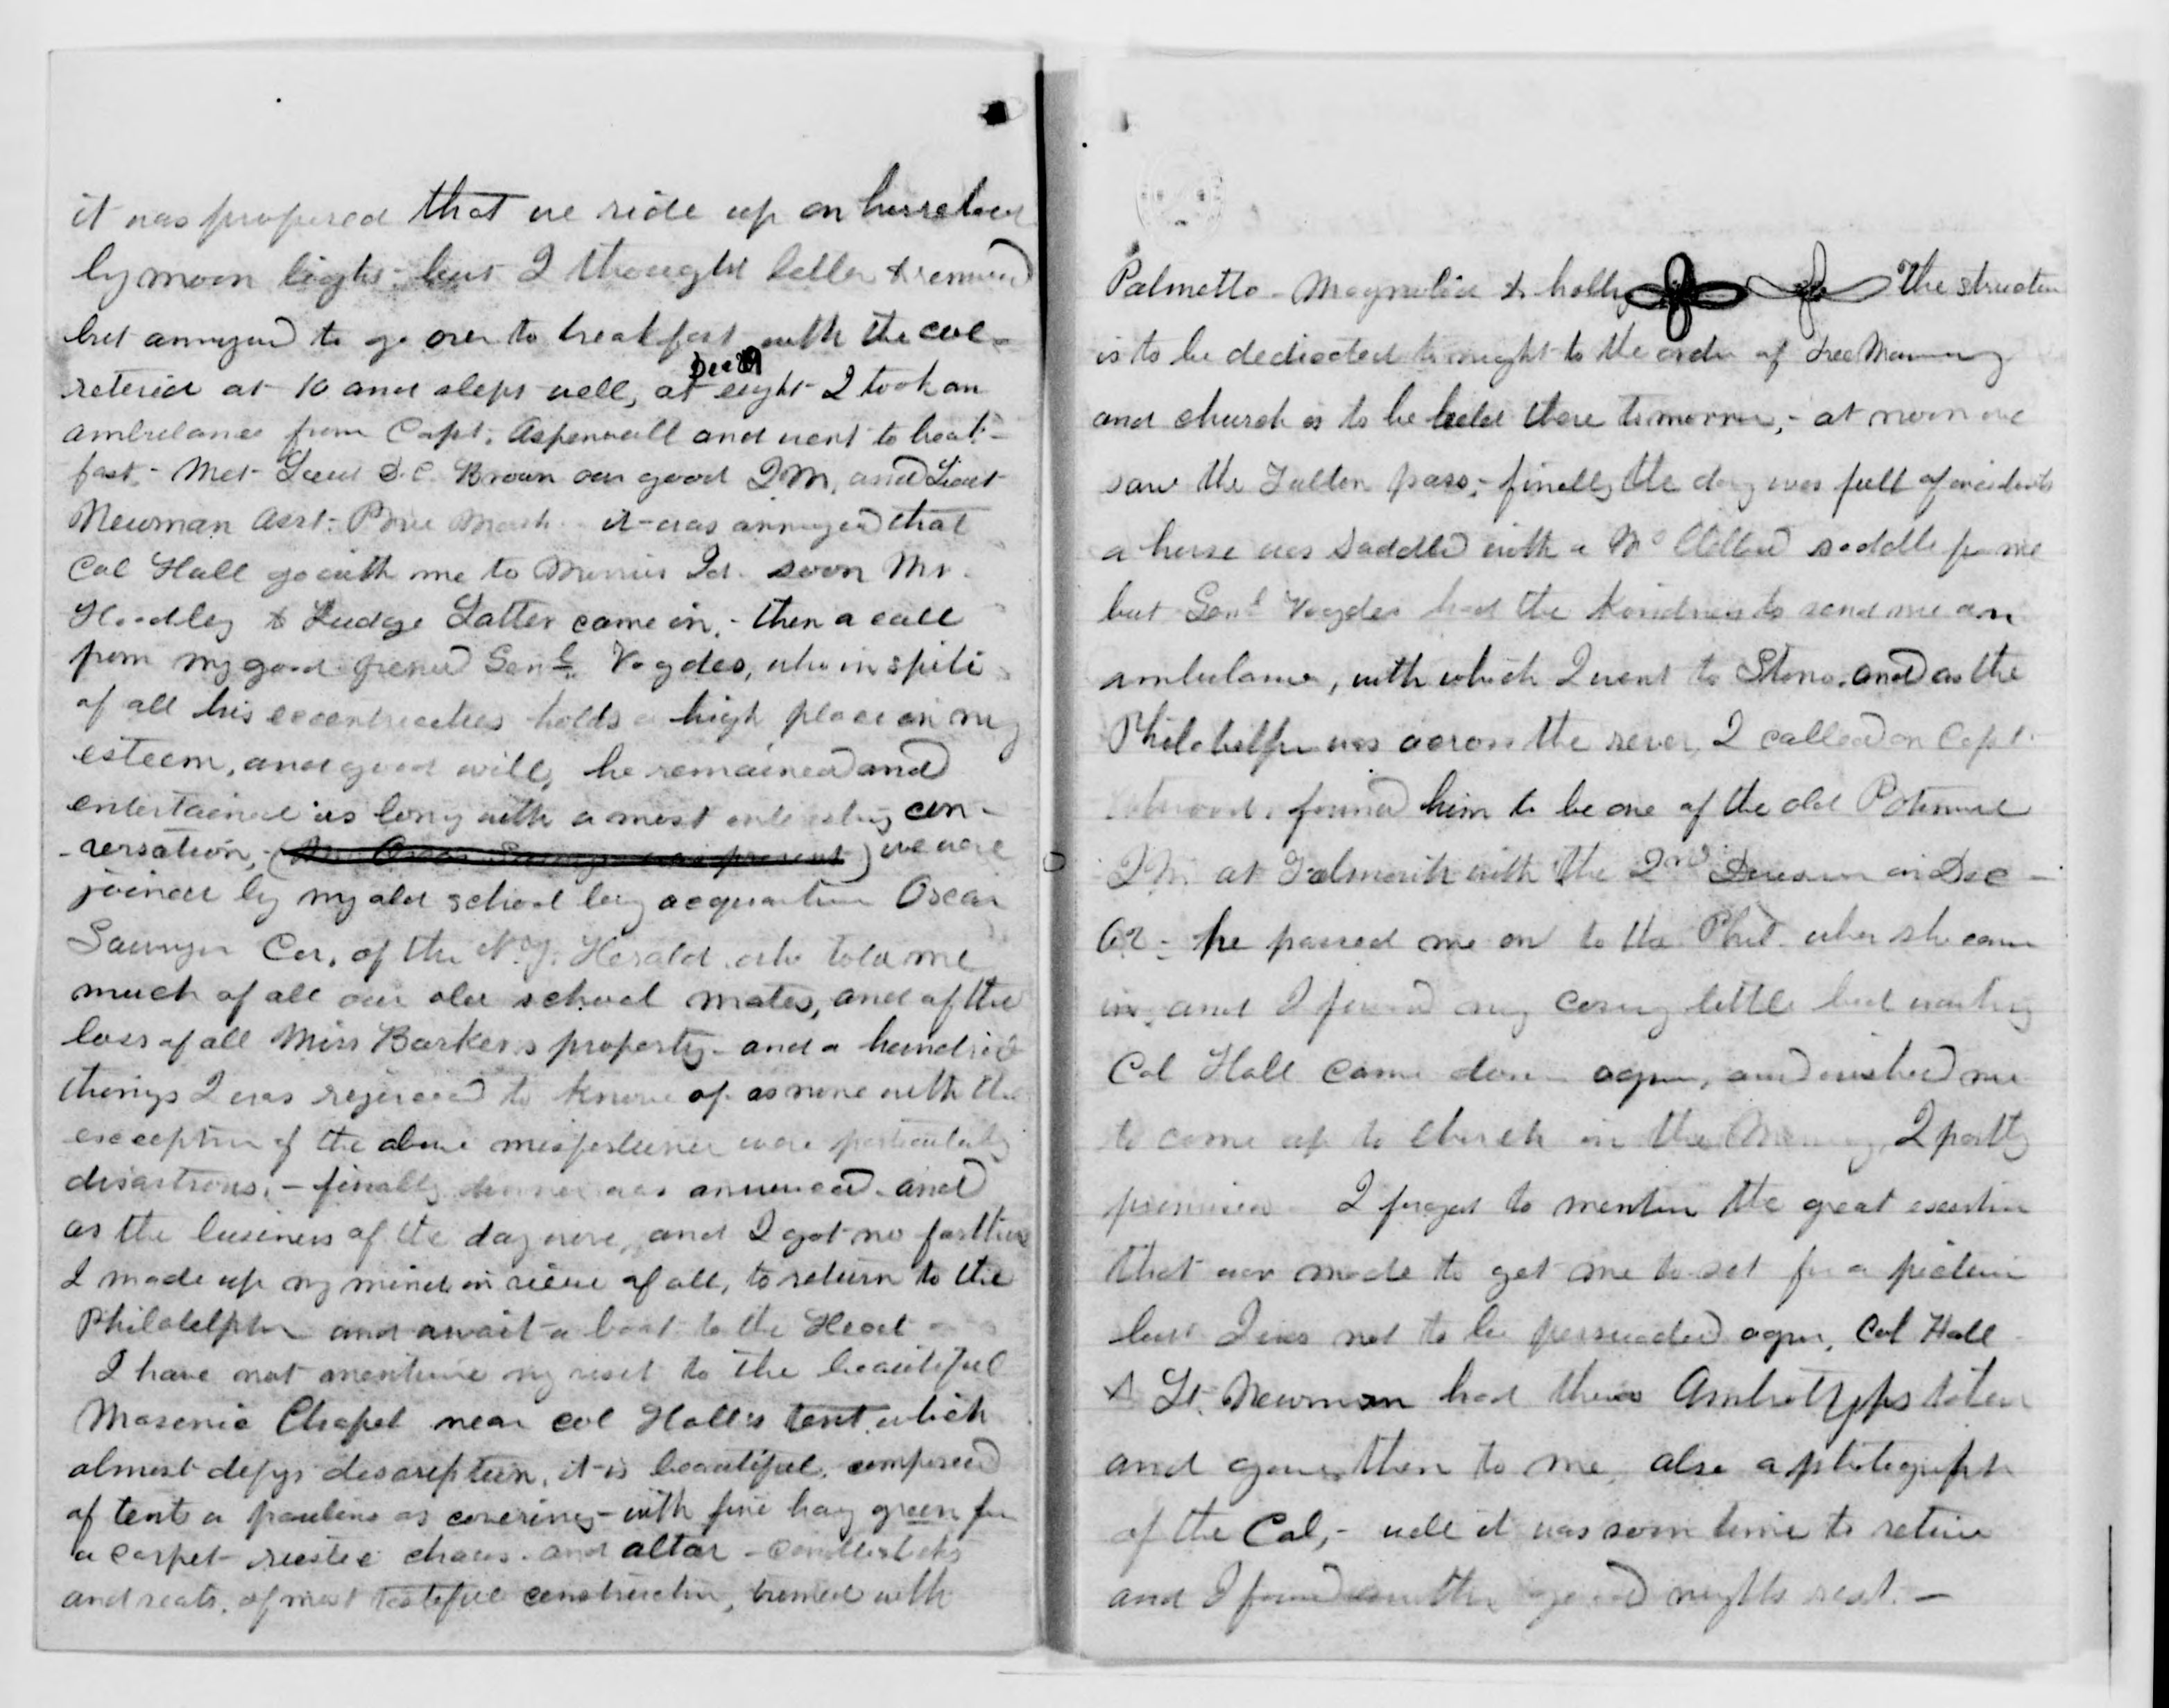 it was proposed that we ride up on horseback
by moon light - but I thought better & remained
but arranged to go over to breakfast with the col -
retired at 10 and slept well, at eight I took an
Dec
ambulance from Capt. Aspenwall and went to break-
fast - Met Lieut S. C. Brown our good QM, and Lieut
Newman Asst. Prov Marsh. it was arranged that
Col Hall go with me to Morris Id. soon Mr.
Hoadley & Judge Latter came in, - then a call
from my good friend Genl. Vogdes, who in spite
of all his eccentricities holds a high place in my
esteem, and good will, he remained and
entertained us long with a most interesting con-
-versation, - (Mr Oscar Sawyer was present) we were
joined by my old school boy acquaintance Oscar
Sawyer Cor. of the N.Y. Herald who told me
much of all our old school mates, and of the
loss of all Miss Barker's property - and a hundred
things I was rejoiced to know of as none with the
exception of the above misfortune were particularly
disastrous, - finally dinner was announced and
as the business of the day over, and I got no farther
I made up my mind in view of all, to return to the
Philadelphia and await a boat to the Head -
I have not mentioned my visit to the beautiful
Masonic Chapel near Col Hall's tent which
almost defys description, it is beautiful, composed
of tents a paulins as coverings - with fine hay green for
a carpet rustic chairs and altar - candlesticks
and seats, of most tasteful construction, trimed with
Palmetto - Magnolia & holly The structure
is to be dedicated to night to the order of Free Masonry
and church is to be held there tomorrow, - at noon we
saw the Fulton pass, - finally the day was full of incidents
a horse was saddled with a McClellan saddle for me
but Genl Vogdes had the kindness to send me an
ambulance, with which I went to Stono, and as the
Philadelphia was across the river, I called on Capt.
found him to be one of the old Potomac
QM. at Falmouth with the 2nd Division in Dec -
62 - he passed me on to the Phil. when she came
in, and I found my cosey little bed waiting
Col Hall came down again, and wished me
to come up to church in the Morning, I partly
promised - I forgot to mention the great exertion
that was made to get me to set for a picture
but I was not to be persuaded again, Col Hall
& Lt. Newman had theirs Ambrotyps taken
and gave them to me, also a photograph
of the Col, - well it was soon time to retire
and I found another good nights rest. -